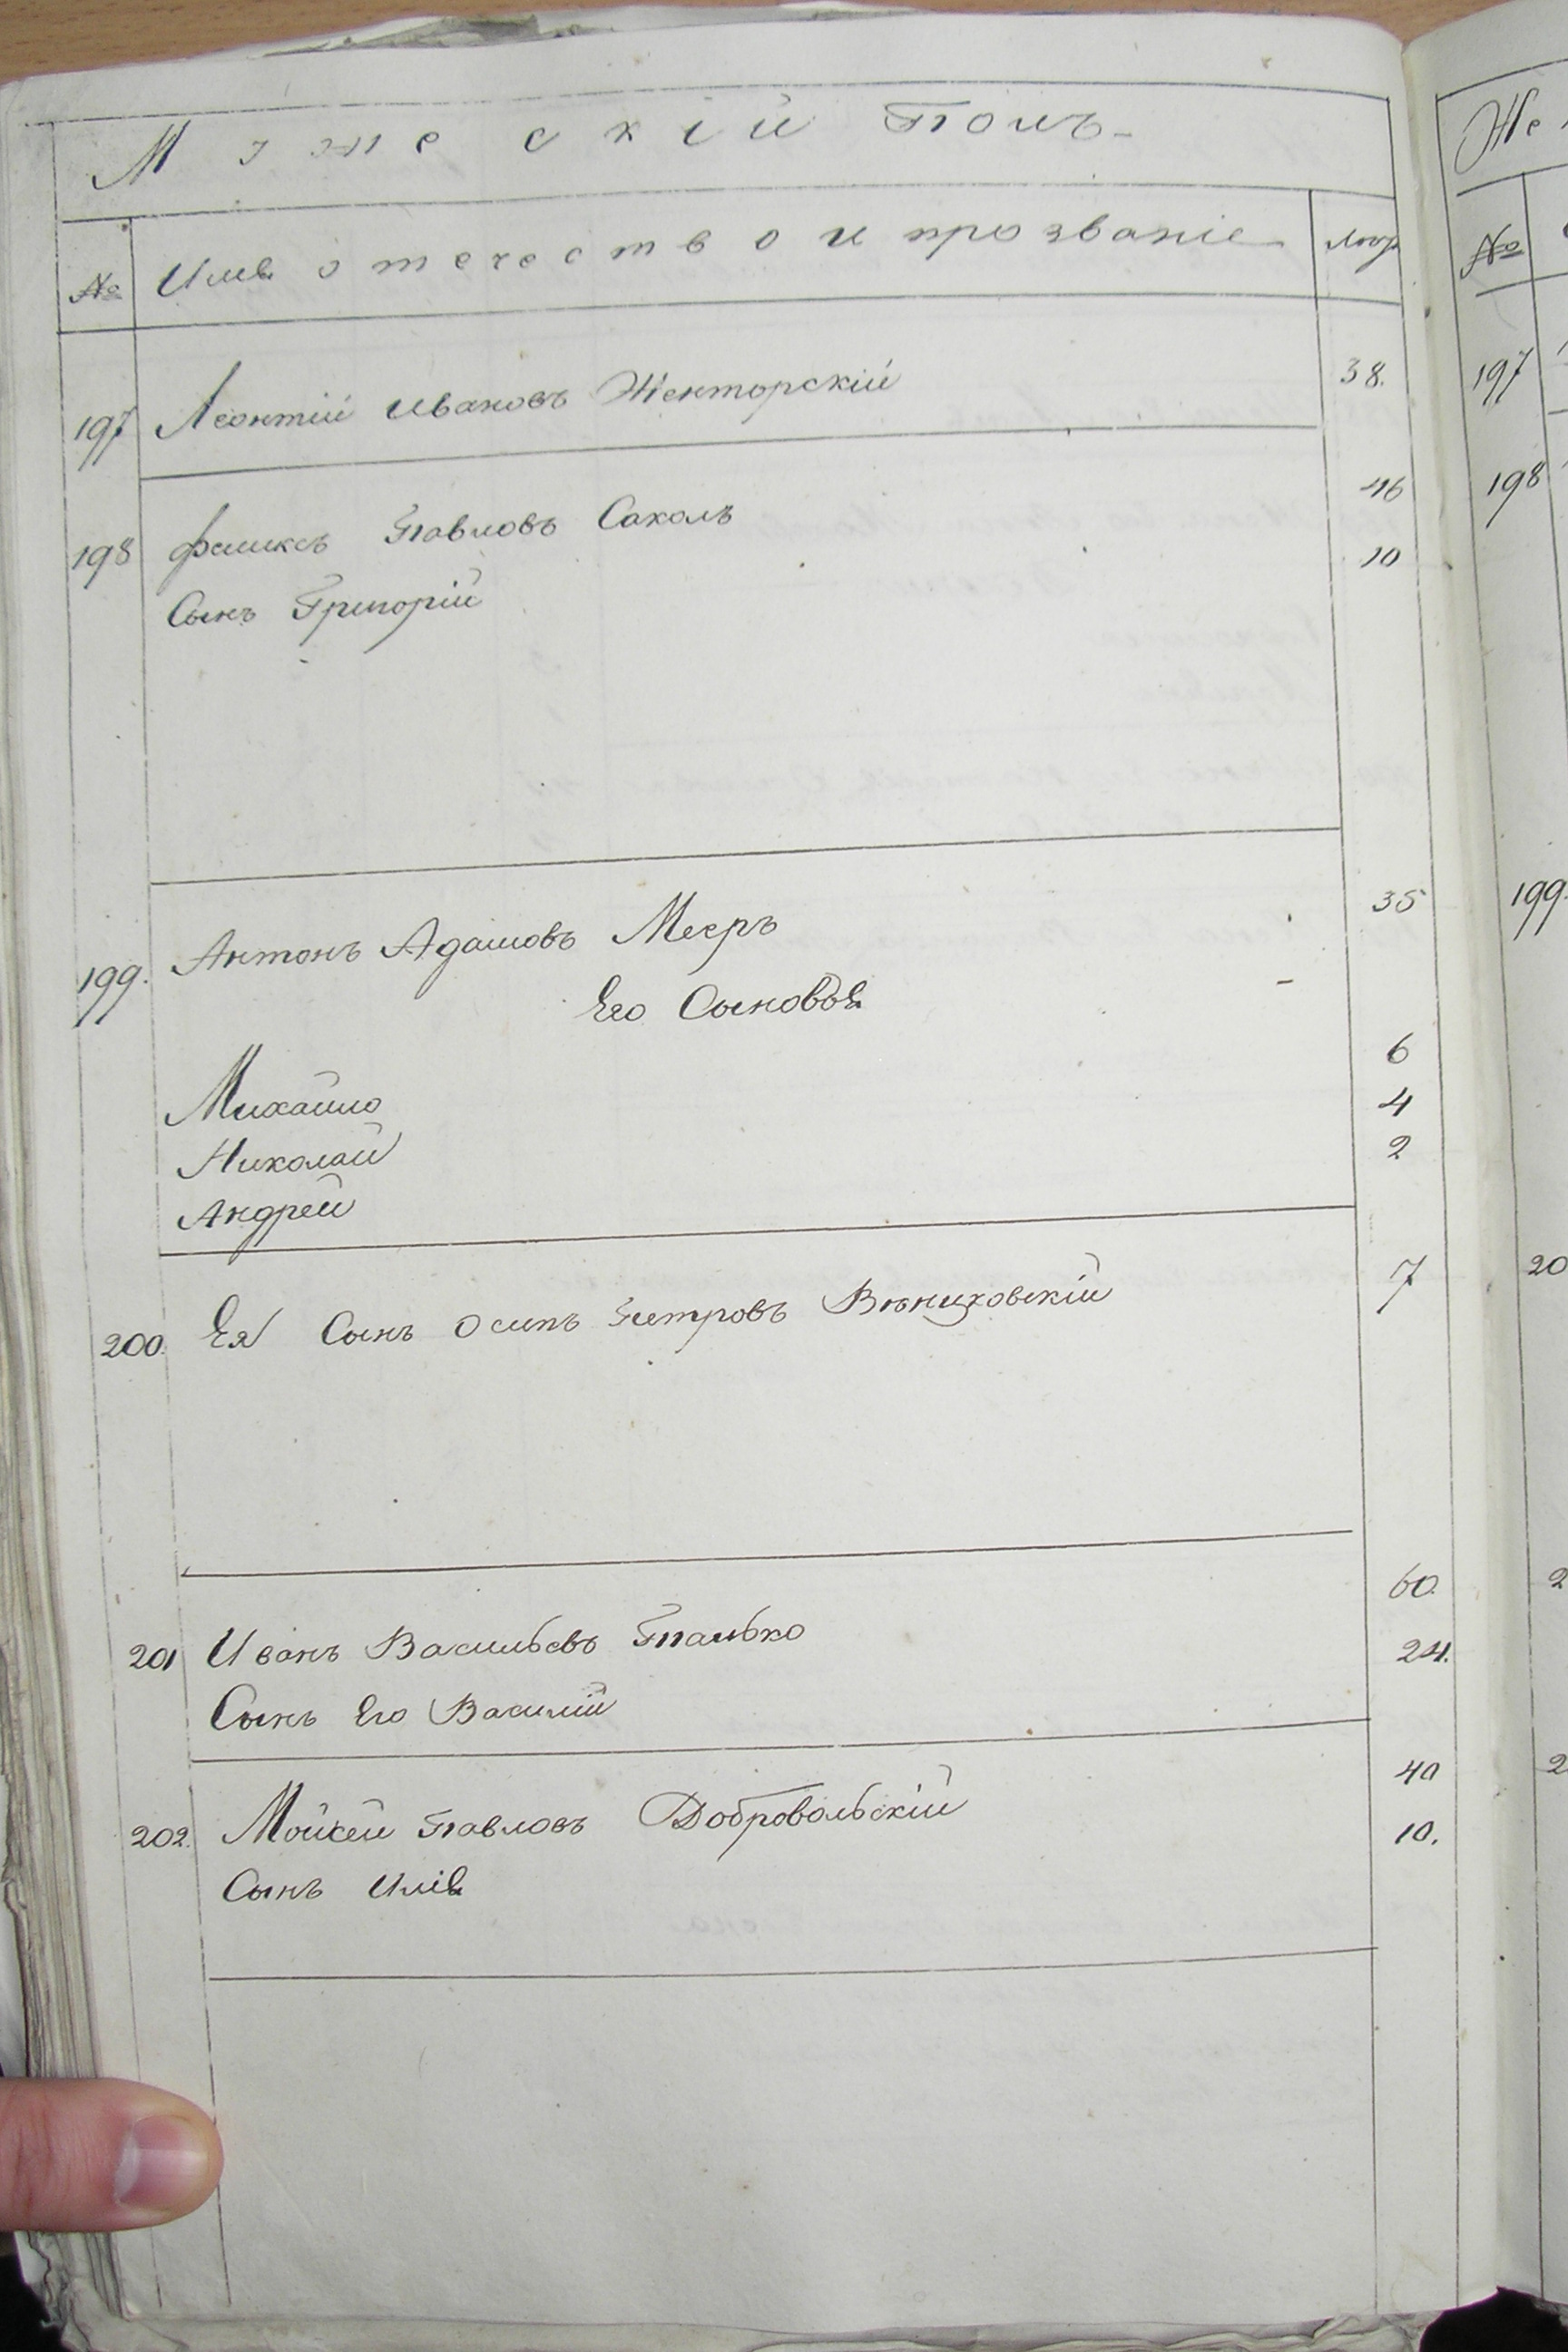 Мужескій Полъ
№ Имя отечество и прозваніе Лѣта
197 Леонтій Ивановъ Жекторскій 38.
198 Фаликсъ Павловъ Саколъ 46
Сынъ Григорій 10
199. Антонъ Адамовъ Мееръ 35
Его Сыновья
Михайло 6
Николай 4
Андрей 2
200. Ея Сынъ Осипъ Петровъ 7
201 Иванъ Васильевъ Палько 60.
Сынъ Его Василій 24.
202. Мойсей Павловъ Добровольскій 40
Сынъ Илія 10.
Же
№
197
198
199.
20
2
2